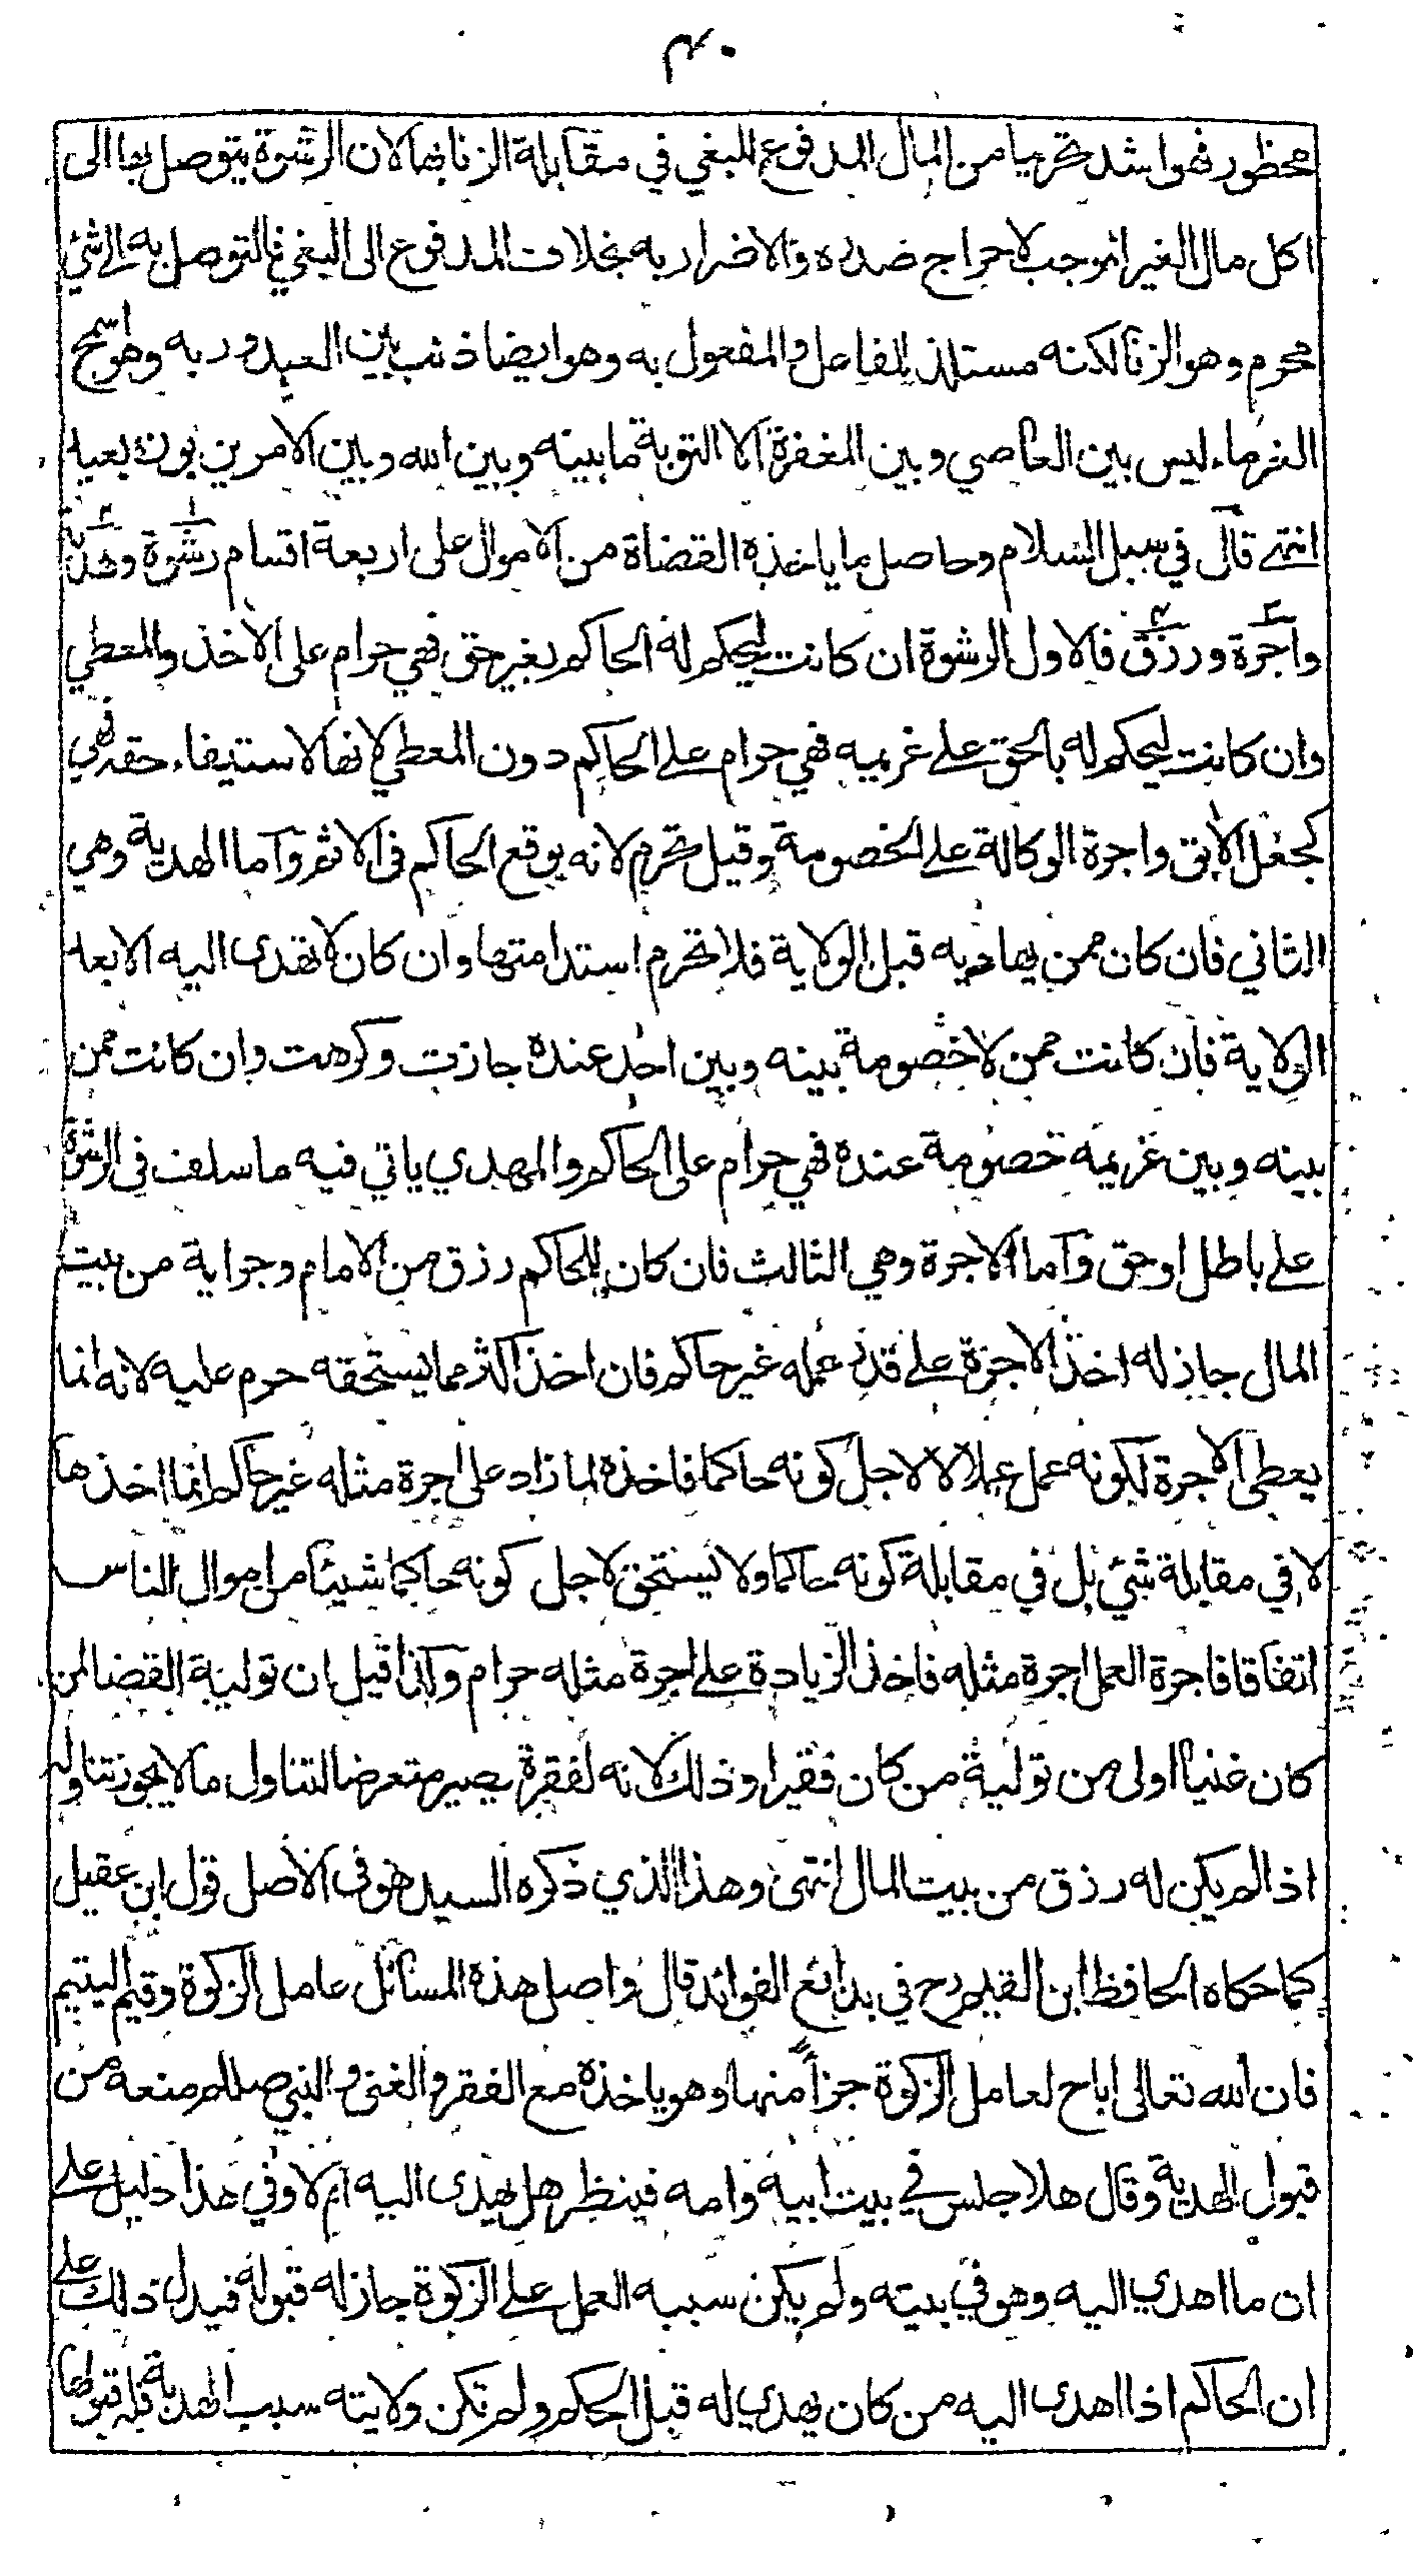 ٤٠
محظور فهو اشد تحريما من المال المدفوع للبغي في مقابلة الزنا بها لان الرشوة يتوصل بها الى
اكل مال الغير الموجب لاحراج صدره والاضرار به بخلاف المدفوع الى البغي فالتوصل به الى شئ
محرم وهو الزنا لكنه مستلذ للفاعل والمفعول به وهو ايضا ذنب بين العبد وربه وهو اسمح
الغرماء ليس بين العاصي وبين المغفرة الا التوبة ما بينه وبين الله وبين الامرين بون بعيد
انتهى قال في سبل السلام وحاصل ما ياخذه القضاة من الاموال على اربعة اقسام رشوة وهدية
واجرة ورزق فالاول الرشوة ان كانت ليحكم له الحاكم بغير حق فهي حرام على الاخذ والمعطي
وان كانت ليحكم له بالحق على غريمه فهي حرام على الحاكم دون المعطي لانها لاستيفاء حقه فهي
كجعل الابق واجرة الوكالة على الخصومة وقيل تحرم لانه يوقع الحاكم في الاثم واما الهدية وهي
الثاني فان كان ممن يهاديه قبل الولاية فلا تحرم استدامتها وان كان لا تهدى اليه الا بعد
الولاية فان كانت ممن لا خصومة بينه وبين احد عنده جازت وكرهت وان كانت ممن
بينه وبين غريمه خصومة عنده فهي حرام على الحاكم والمهدي ياتي فيه ما سلف في الرشوة
على باطل او حق واما الاجرة وهي الثالث فان كان للحاكم رزق من الامام وجراية من بيت
المال جاز له اخذ الاجرة على قدر عمله غير حاكم فان اخذ اكثر مما يستحقه حرم عليه لانه انما
يعطى الاجرة لكونه عمل عملا لا لاجل كونه حاكما فاخذه لما زاد على اجرة مثله غير حاكم انما اخذها
لا في مقابلة شئ بل في مقابلة كونه حاكما ولا يستحق لاجل كونه حاكما شيئا من اموال الناس
اتفاقا فاجرة العمل اجرة مثله فاخذ الزيادة على اجرة مثله حرام ولذا قيل ان تولية القضا لمن
كان غنيا اولى من تولية من كان فقيرا وذلك لانه لفقره يصير متعرضا لتناول ما لا يجوز تناوله
اذا لم يكن له رزق من بيت المال انتهى وهذا الذي ذكره السيد هو في الاصل قول ابن عقيل
كما حكاه الحافظ ابن القيم رح في بدائع الفوائد قال واصل هذه المسائل عامل الزكوة وقيم اليتيم
فان الله تعالى اباح لعامل الزكوة جزأ منها وهو ياخذه مع الفقر والغنى والنبي صللم منعه من
قبول الهدية وقال هلا جلس في بيت ابيه وامه فينظر هل يهدى اليه ام لا وفي هذا دليل على
ان ما اهدي اليه وهو في بيته ولم يكن سببه العمل على الزكوة جاز له قبوله فيدل ذلك على
ان الحاكم اذا اهدى اليه من كان يهدي له قبل الحكم ولم تكن ولايته سبب الهدية فله قبولها